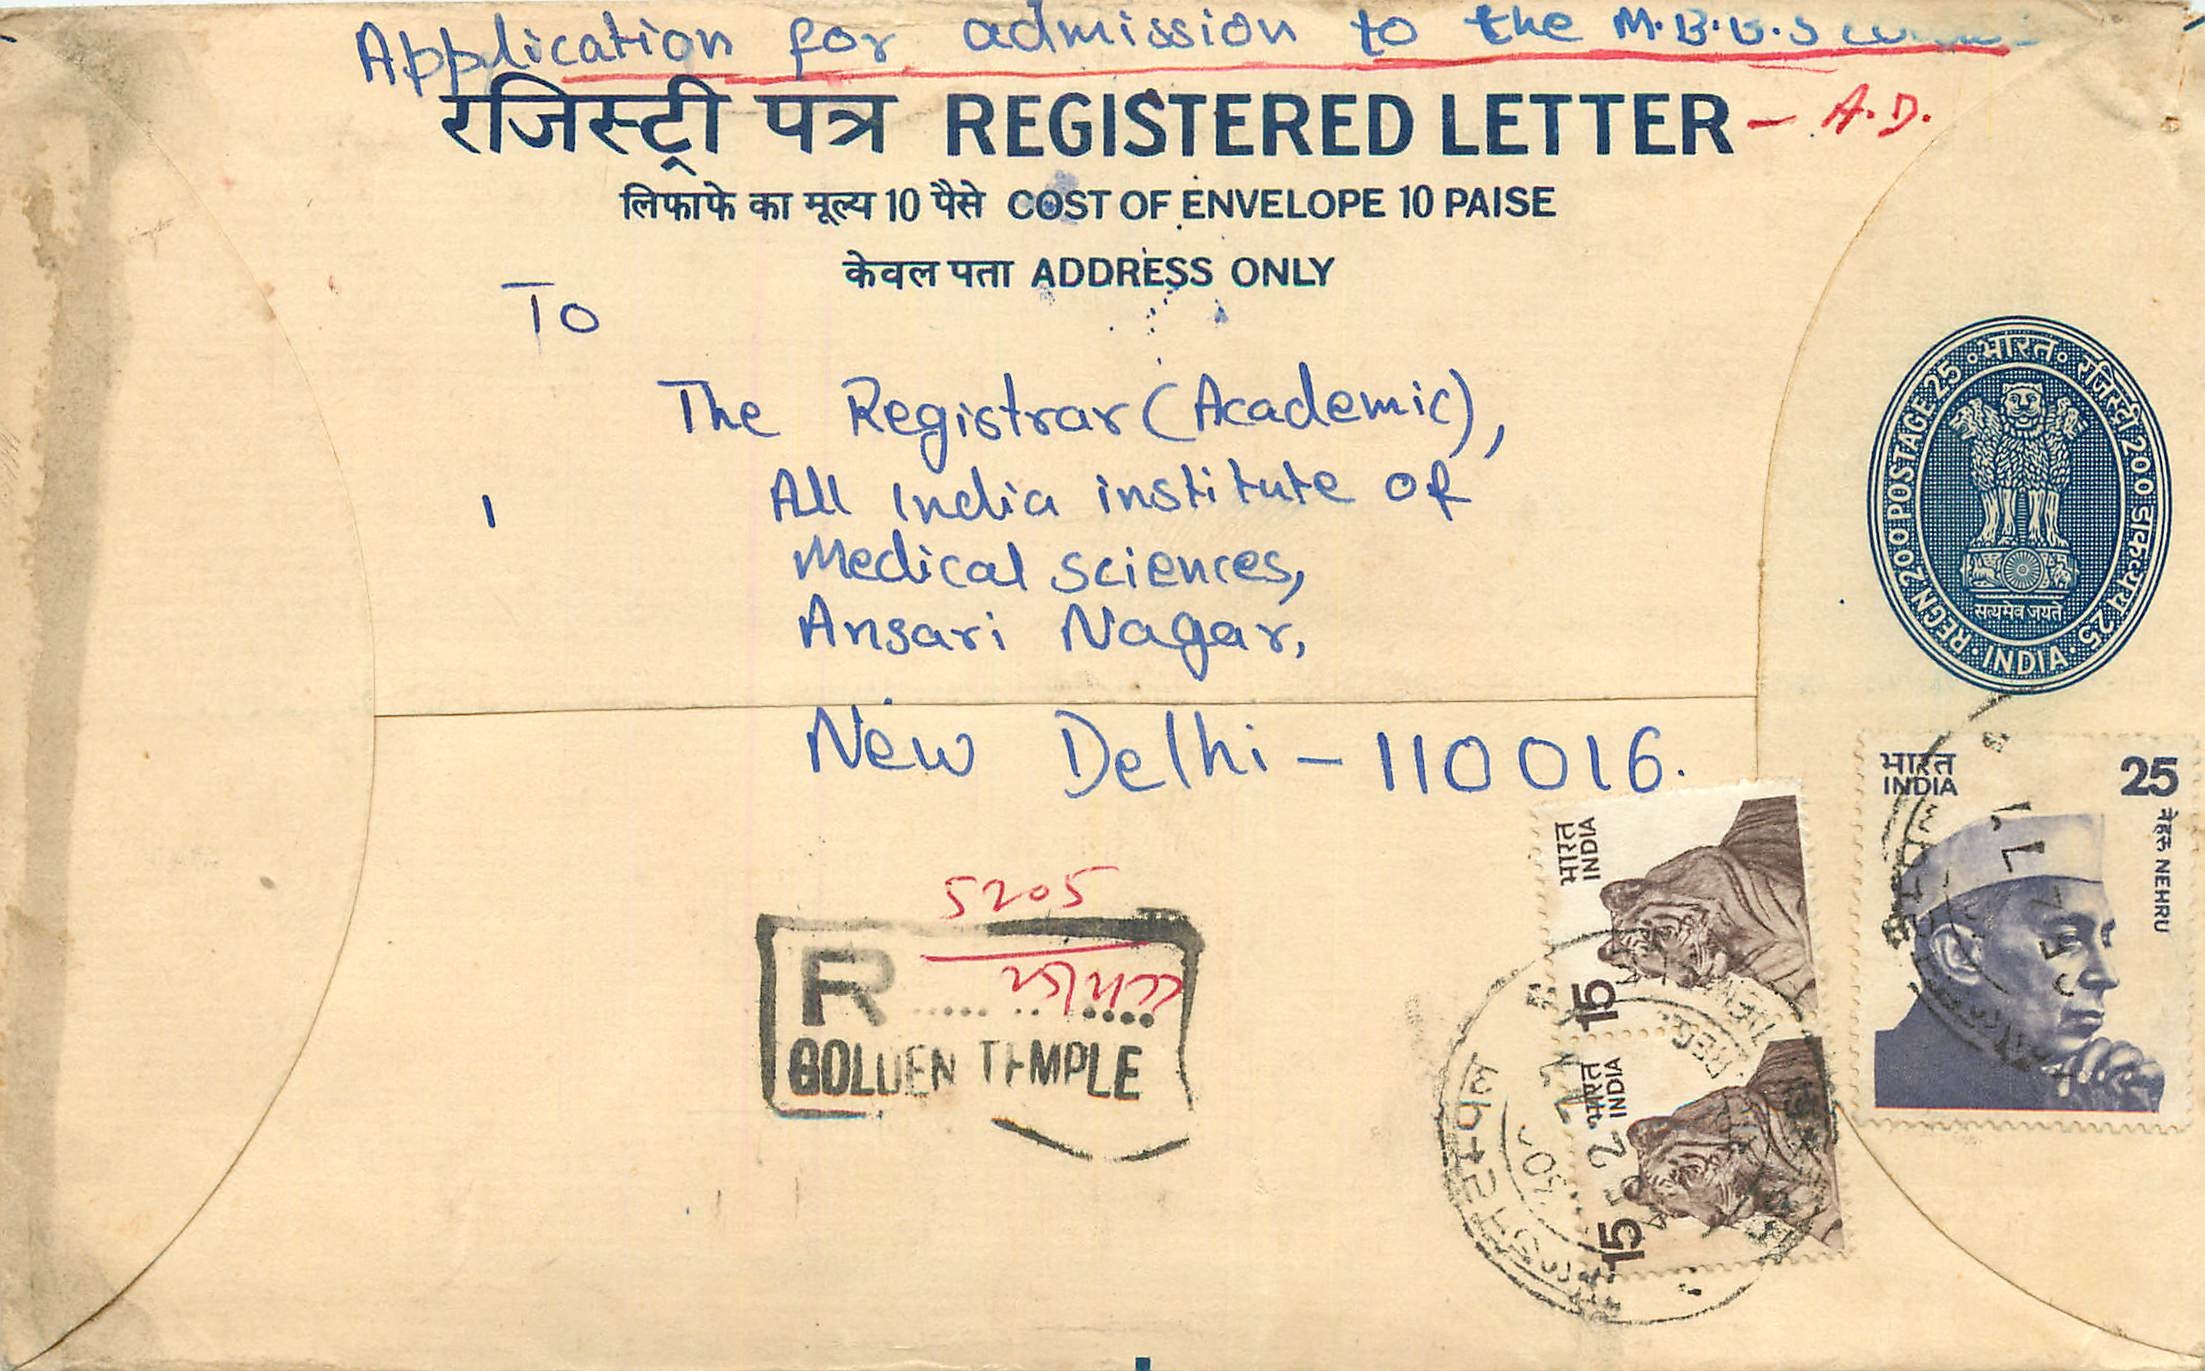 Application for admission to the M.B.B.S
रजिस्ट्री पत्र REGISTERED LETTER - A.D.
लिफाफे का मूल्य 10 पैसे COST OF ENVELOPE 10 PAISE
केवल पता ADDRESS ONLY
To
The Registrar (Academic),
All India institute of
Medical sciences,
Ansari Nagar,
New Delhi - 110016.
भारत रजिस्ट्री 200 डाकव्यय 25
REGN 200 POSTAGE 25
सत्यमेव जयते
INDIA
भारत
INDIA
25
नेहरू NEHRU
भारत
INDIA
15
भारत
INDIA
15
5205
R
GOLDEN TEMPLE